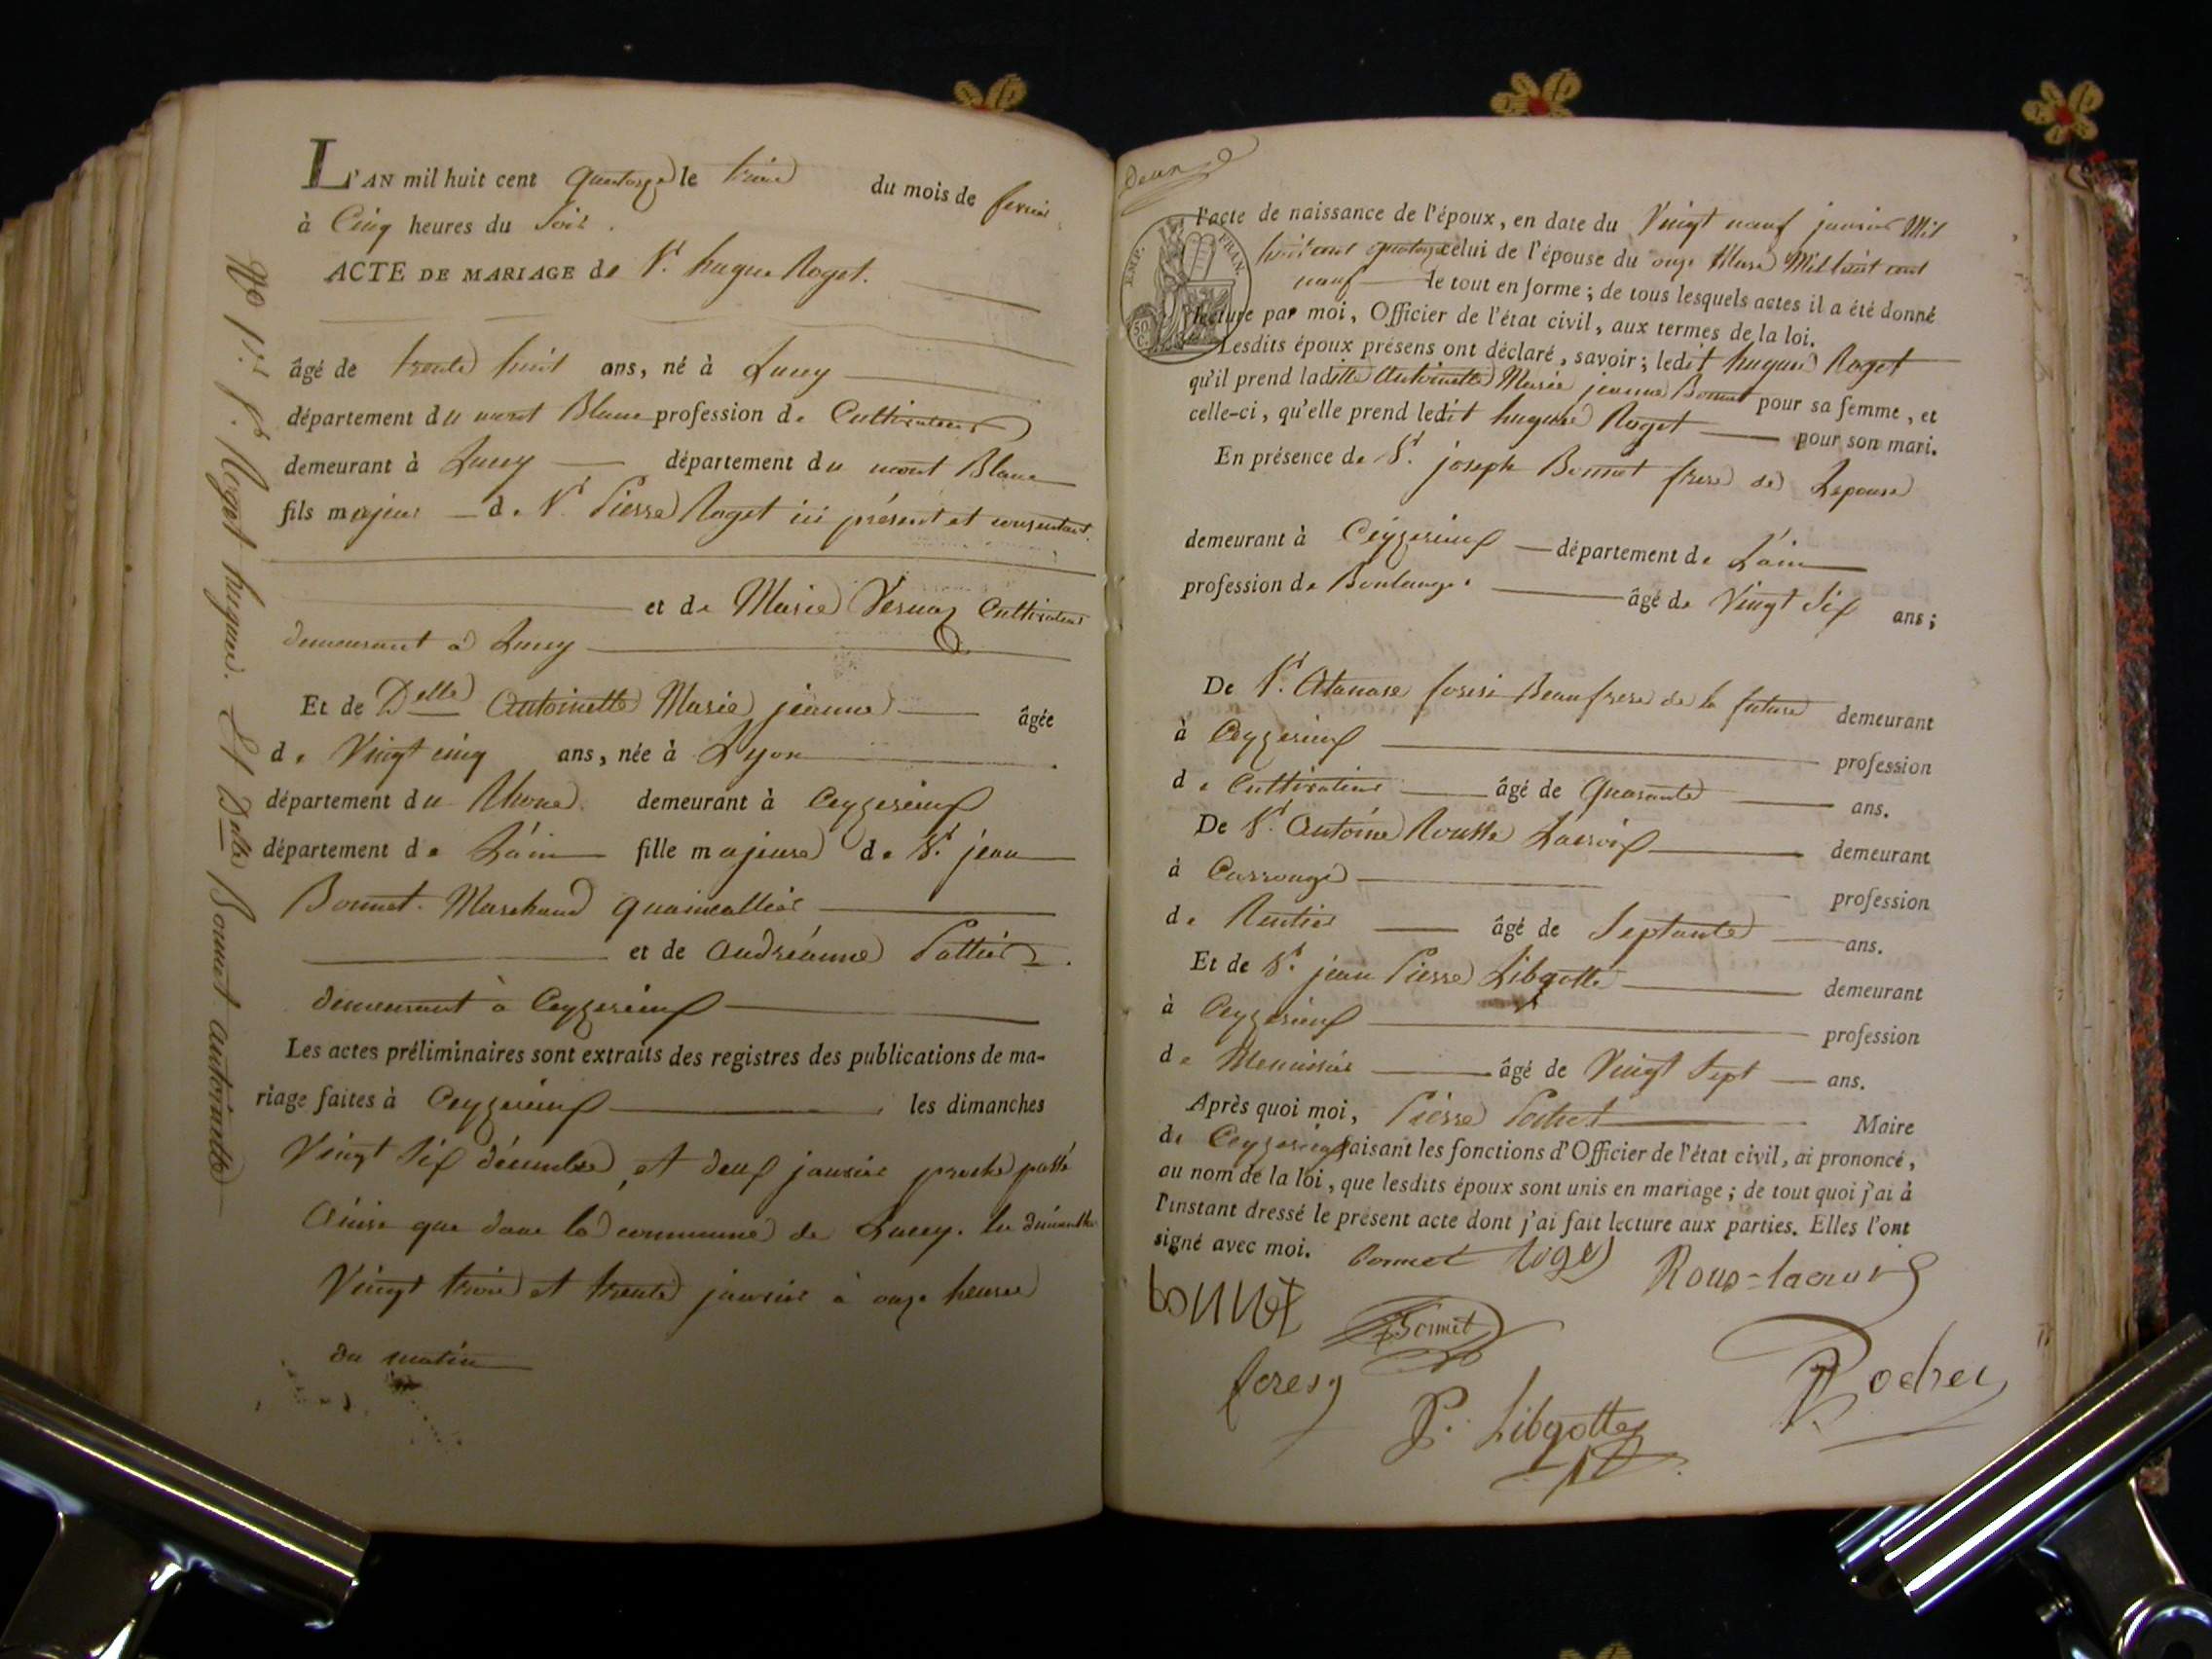 L'AN mil huit cent quatorze le trois du mois de fevrier
à Cinq heures du Soir.
ACTE DE MARIAGE de Sr. hugue Roget.
âgé de trente huit ans, né à Lucey
département du mont Blanc profession de Cultivateur
demeurant à Lucey département du mont Blanc
fils majeur de Sr. Pierre Roget ici présent et consentant.
et de Marie Vernaz Cultivateur
demeurant à Lucey
Et de Delle Antoinette Marie jeanne âgée
de Vingt cinq ans, née à Lyon
département du Rhone. demeurant à Ceyzerieux
département de L'ain fille majeure de Sr. jean
Bonnet. Marchand quaincallier
et de andréanne Pattier.
demeurant à Ceyzerieux
Les actes préliminaires sont extraits des registres des publications de ma-
riage faites à Ceyzerieux les dimanches
Vingt Six décembre, et deux janvier proche passé
Ainsi que dans la commune de Lucey. les dimanches
Vingt trois et trente janvier à onze heures
du matin
No 1er Sr. Roget hugue. Et Delle Bonnet antoinette
deux
l'acte de naissance de l'époux, en date du Vingt neuf janvier Mil
huit cent quatorze celui de l'épouse du onze Mars Mil huit cent
neuf le tout en forme; de tous lesquels actes il a été donné
lecture par moi, Officier de l'état civil, aux termes de la loi.
Lesdits époux présens ont déclaré, savoir; ledit hugue Roget
qu'il prend laditte Antoinette Marie jeanne Bonnet pour sa femme, et
celle-ci, qu'elle prend ledit hugue Roget pour son mari.
En présence de Sr. joseph Bonnet frere de Lepouse
demeurant à Ceyzerieux département de L'ain
profession de Boulanger âgé de Vingt Six ans;
De Sr. Atanase foresi Beaufrere de la future demeurant
à Ceyzerieux profession
de Cultivateur âgé de quarante ans.
De Sr. Antoine Rousse Lacroix demeurant
à Carrouge profession
de Rentier âgé de Septante ans.
Et de Sr. jean Pierre Libgotte demeurant
à Ceyzerieux profession
de Menuisier âgé de Vingt Sept ans.
Après quoi moi, Pierre Maire
de Ceyzerieux faisant les fonctions d'Officier de l'état civil, ai prononcé,
au nom de la loi, que lesdits époux sont unis en mariage; de tout quoi j'ai à
l'instant dressé le présent acte dont j'ai fait lecture aux parties. Elles l'ont
signé avec moi. Bonnet Roget
bonnet Bonnet
foresy P. Libgotte
EMP. FRAN.
50 C.